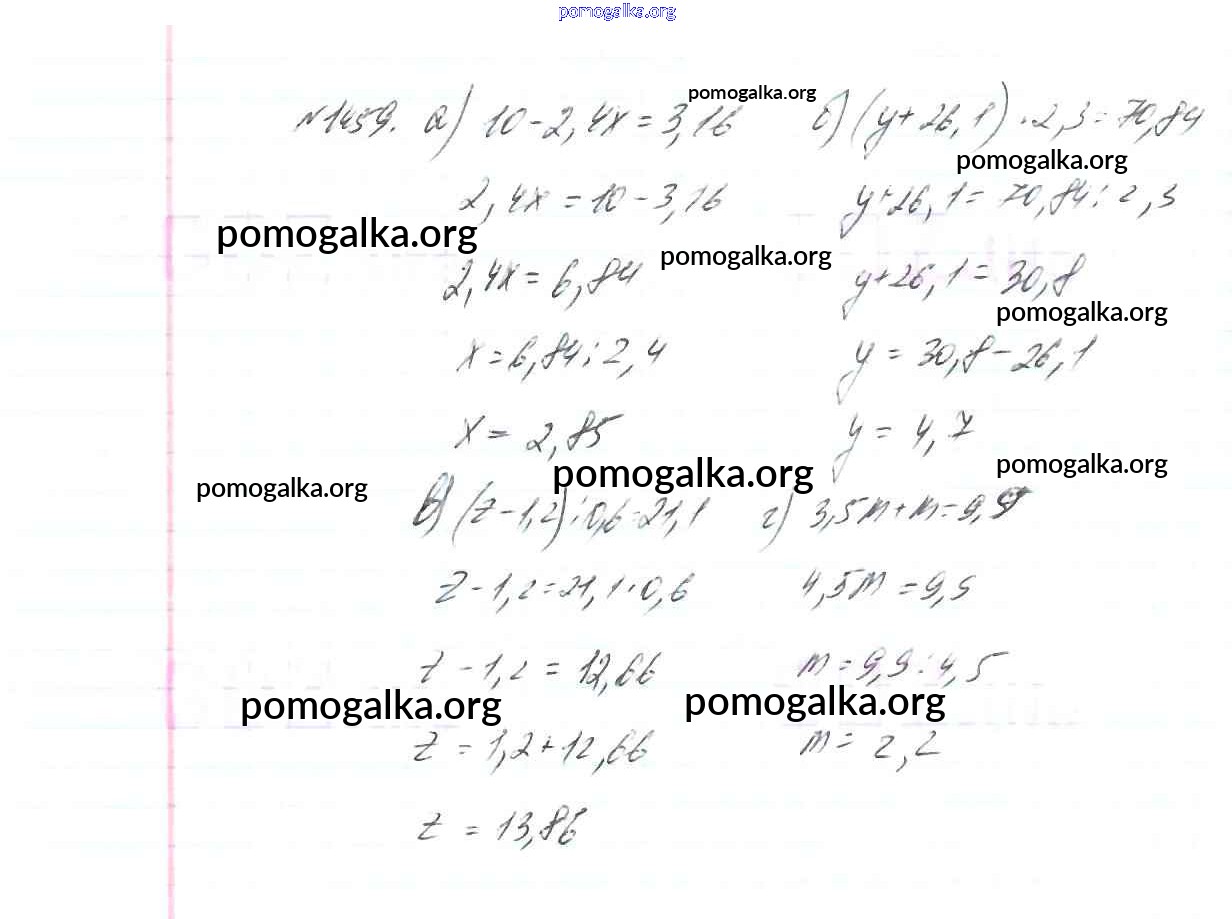 pomogalka.org
pomogalka.org
№1459. а) 10-2,4x=3,16 б) (y+26,1)·2,3=70,84
pomogalka.org
2,4x=10-3,16 y+26,1=70,84:2,3
pomogalka.org
pomogalka.org
2,4x=6,84 y+26,1=30,8
pomogalka.org
x=6,84:2,4 y=30,8-26,1
x=2,85 y=4,7
pomogalka.org
pomogalka.org
pomogalka.org
в) (z-1,2):0,6=21,1 г) 3,5m+m=9,9
z-1,2=21,1·0,6 4,5m=9,9
z-1,2=12,66 m=9,9:4,5
pomogalka.org
pomogalka.org
z=1,2+12,66 m=2,2
z=13,86